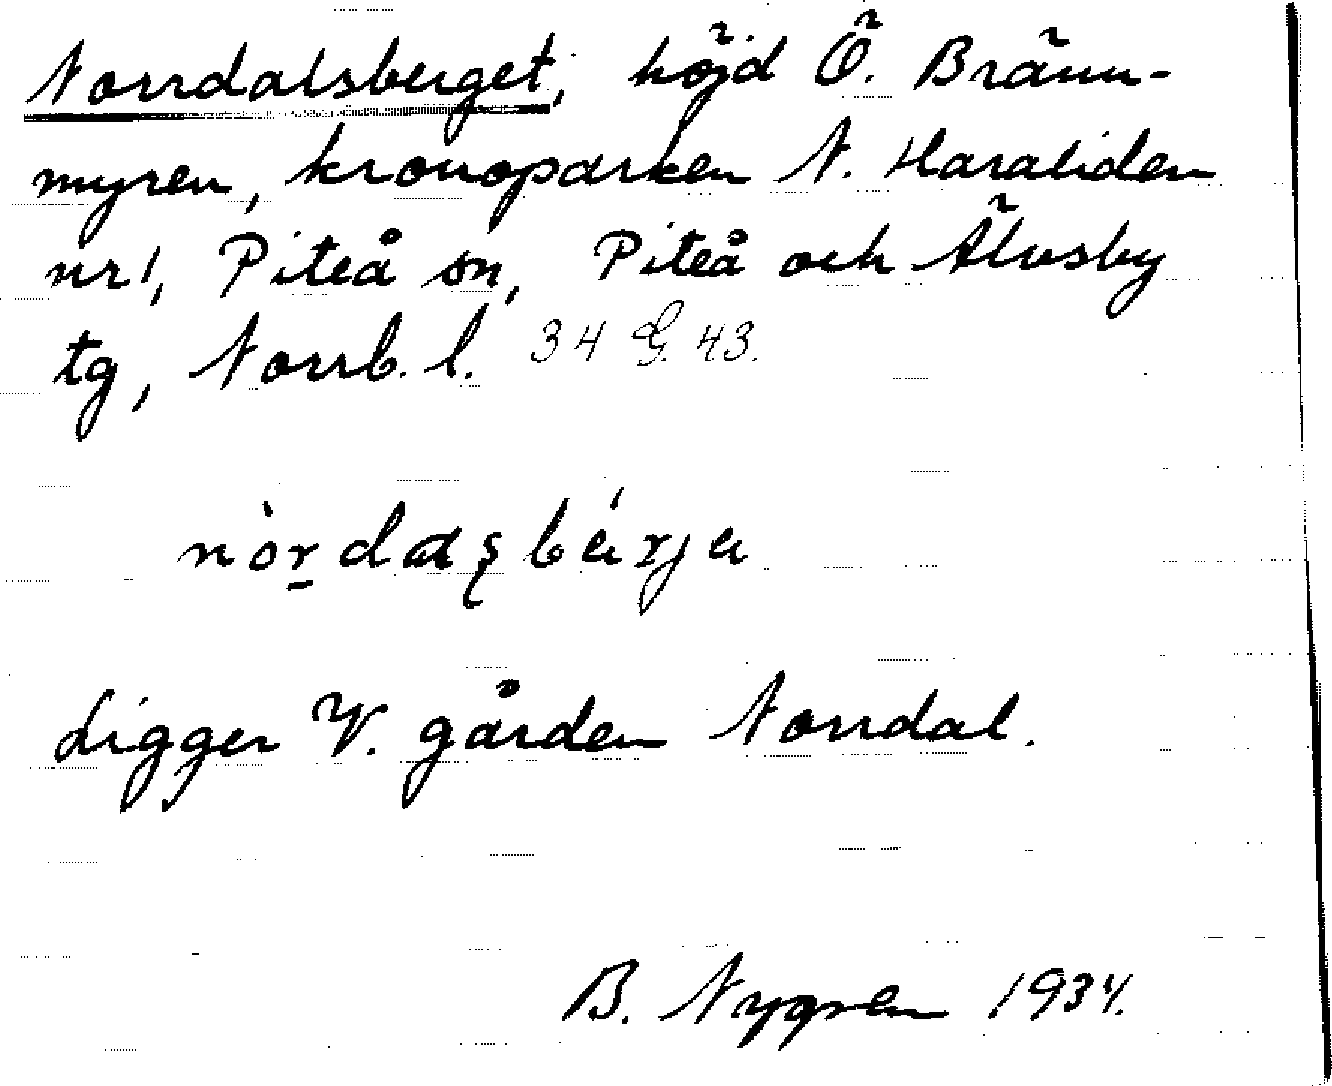 Norrdalsberget, höjd Ö. Bränn-
myren, kronoparken N. Haraliden
nr 1, Piteå sn, Piteå och Älvsby
tg, Norrb. l. 34 G. 43.
Ligger V. gården Norrdal.
B. Nygren 1934.